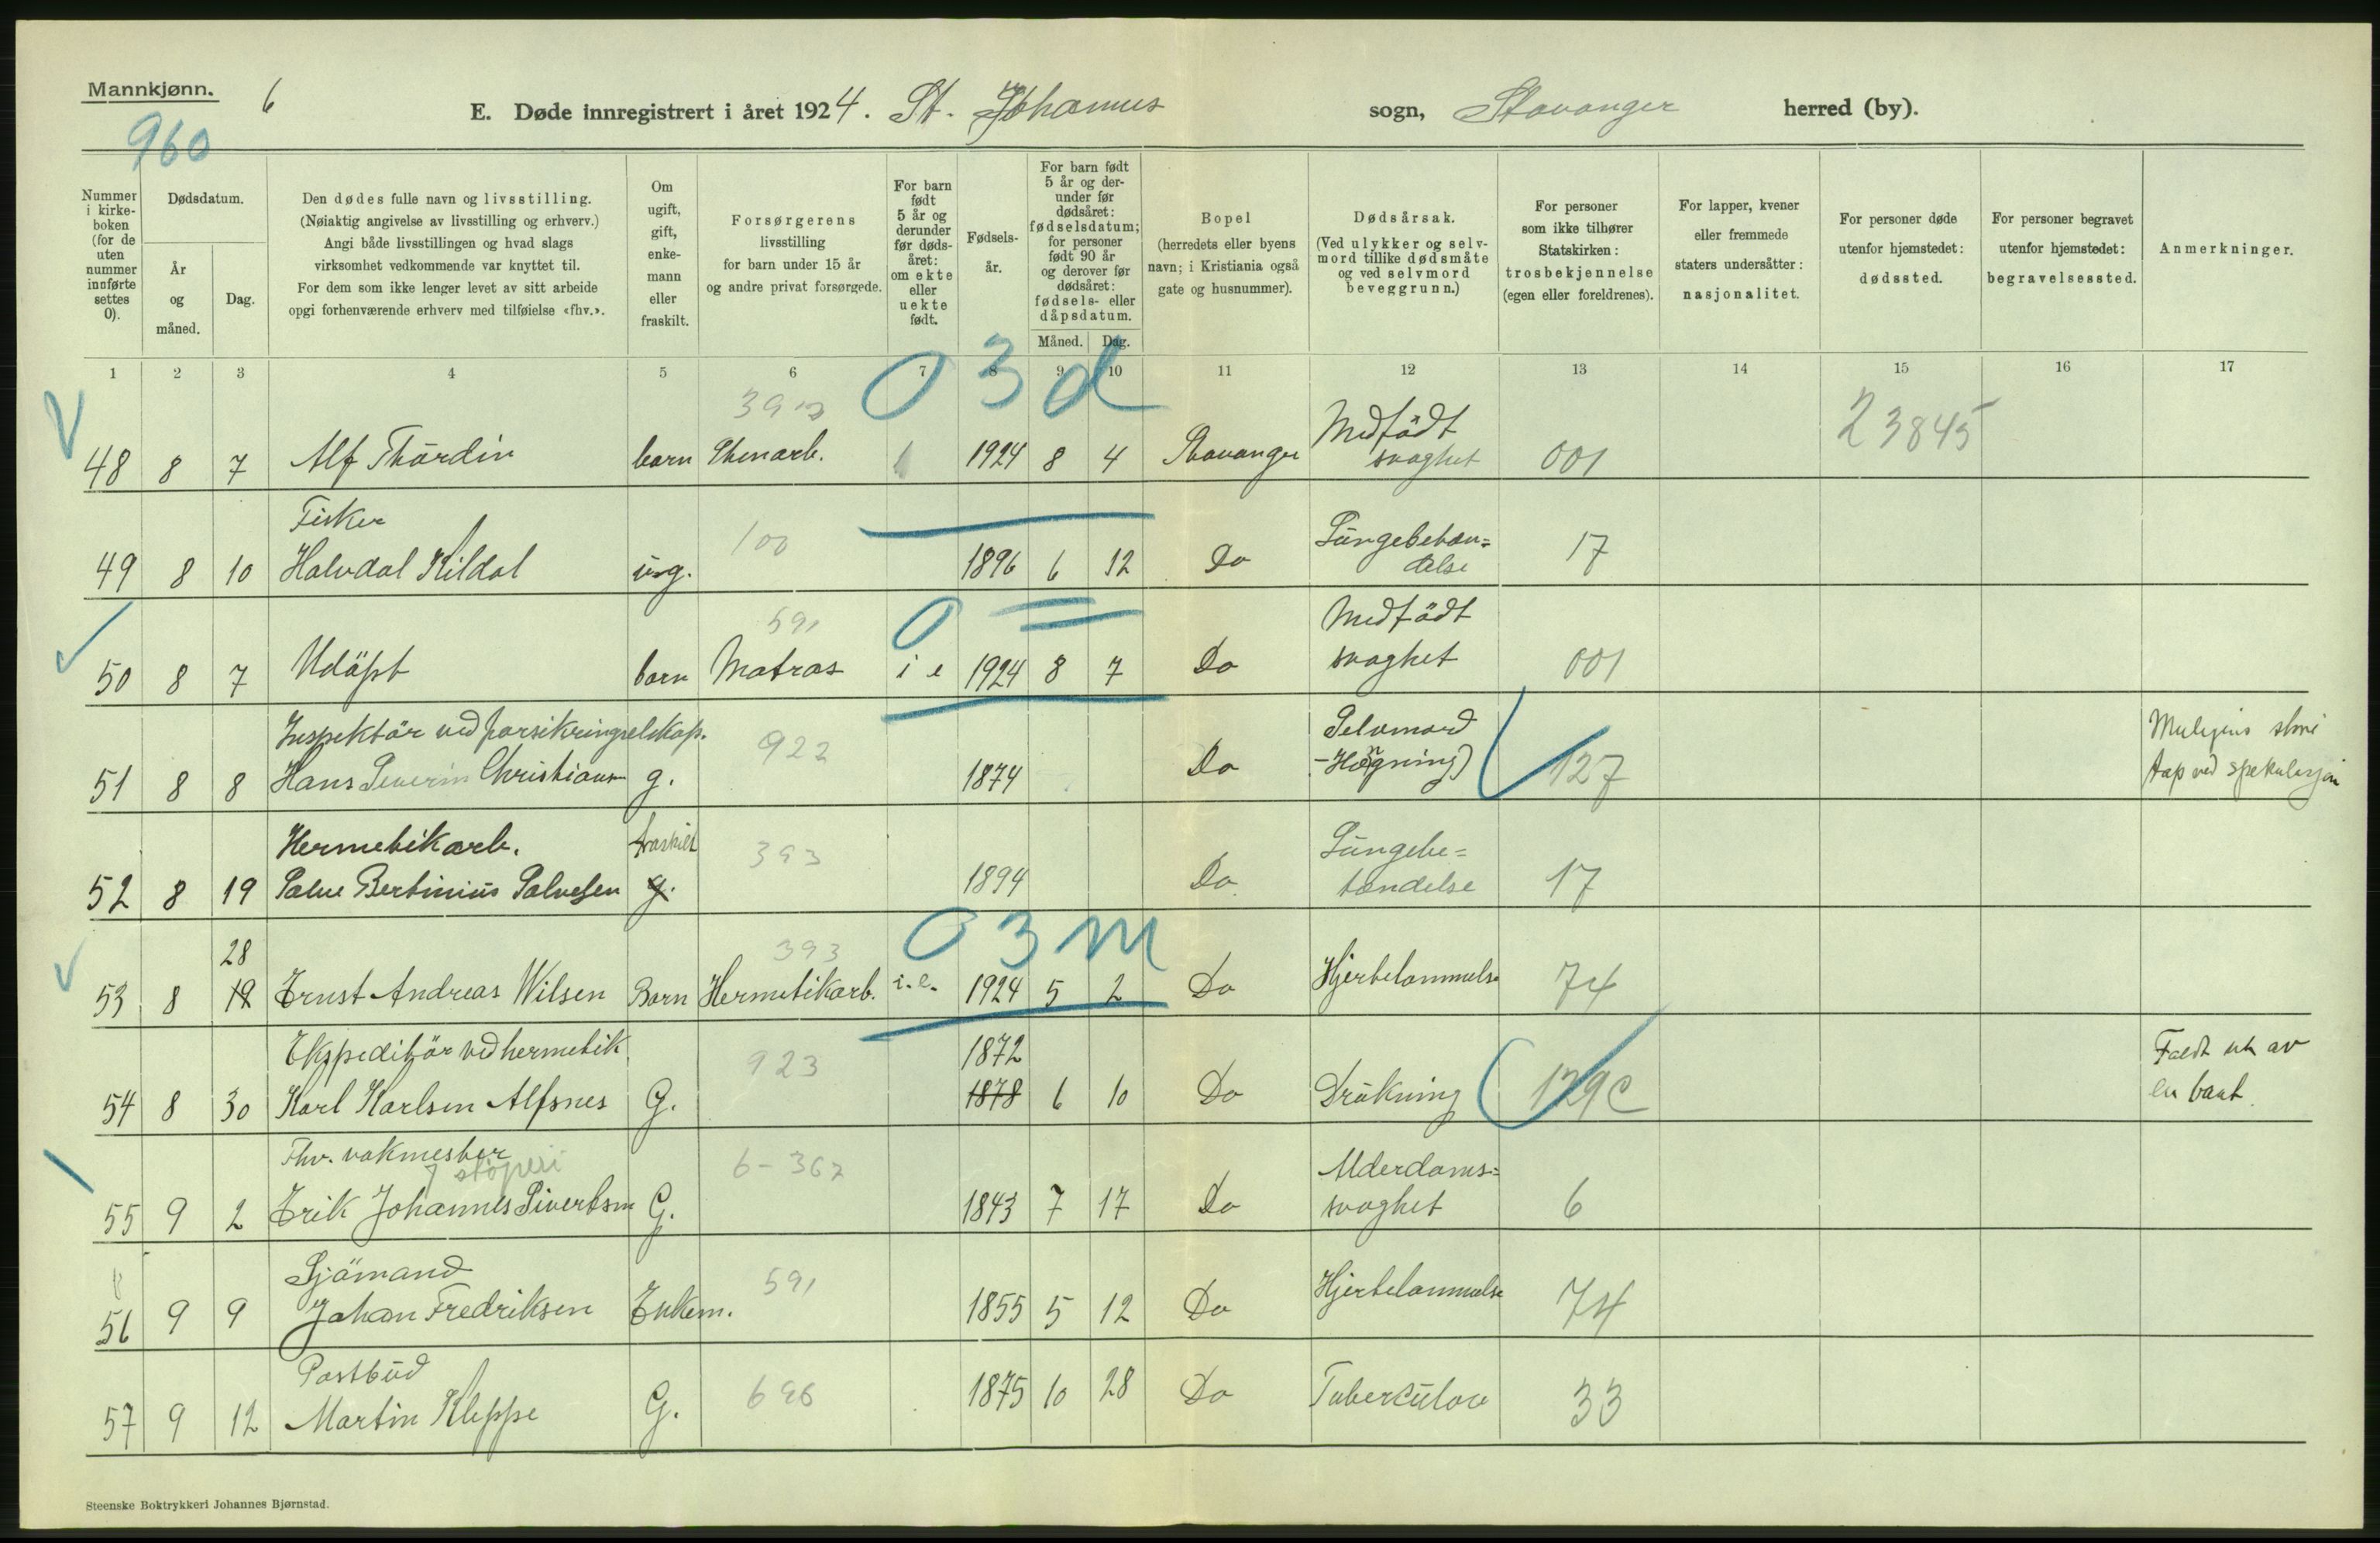 Mannkjønn.
6
960
E. Døde innregistrert i året 1924. St. Johannes sogn, Stavanger herred (by).
Nummer i kirke- boken (for de uten nummer innførte settes 0).
Dødsdatum.
År og måned.
Dag.
Den dødes fulle navn og livsstilling.
(Nøiaktig angivelse av livsstilling og erhverv.)
Angi både livsstillingen og hvad slags
virksomhet vedkommende var knyttet til.
For dem som ikke lenger levet av sitt arbeide
opgi forhenværende erhverv med tilføielse «fhv.».
Om ugift, gift, enke- mann eller fraskilt.
Forsørgerens
livsstilling
for barn under 15 år
og andre privat forsørgede.
For barn født 5 år og derunder før døds- året: om ekte eller uekte født.
Fødsels- år.
For barn født 5 år og der- under før dødsåret: fødselsdatum; for personer født 90 år og derover før dødsåret: fødsels- eller dåpsdatum.
Måned. Dag.
Bopel
(herredets eller byens
navn; i Kristiania også
gate og husnummer).
Dødsårsak.
(Ved ulykker og selv-
mord tillike dødsmåte
og ved selvmord
beveggrunn.)
For personer
som ikke tilhører
Statskirken:
trosbekjennelse
(egen eller foreldrenes).
For lapper, kvener
eller fremmede
staters undersåtter:
nasjonalitet.
For personer døde
utenfor hjemstedet:
dødssted.
For personer begravet
utenfor hjemstedet:
begravelsessted.
Anmerkninger.
1 2 3 4 5 6 7 8 9 10 11 12 13 14 15 16 17
393 0 3 d Medfödt 23845
48 8 7 Alf Thordin barn 1924 8 4 Stavanger svaghet 001
Fisker 100 Lungebetæn=
49 8 10 Halvdal Kildal ug. 1896 6 12 Do delse 17
591 0 Medfödt
50 8 7 Udöpt barn Matros i e 1924 8 7 Do svaghet 001
Inspektör ved forsikringselskap. 922 Selvmord
51 8 8 Hans Severin Christiansen g. 1874 Do -Hængning) 127 tap ved spekulasjon
Hermetikarb. fraskilt 393 Lungebe=
52 8 19 Salve Bertinius Salvesen g. 1894 Do tændelse 17
28 393 0 3 m
53 8 19 Ernst Andreas Wilsen Barn Hermetikarb. i.e. 1924 5 2 Do Hjertelammelse 74
Ekspeditör ved hermetik 923 1872 Faldt ut av
54 8 30 Karl Karlsen Alfsnes G. 1878 6 10 Do Drukning 129c en baat.
Fhv. vakmester støperi 6-367 Alderdoms=
55 9 2 Erik Johannes Sivertsen G. 1843 7 17 Do svaghet 6
Sjömand 591
56 9 9 Johan Fredriksen Enkem. 1855 5 12 Do Hjertelammelse 74
Postbud 696
57 9 12 Martin Kleppe G. 1875 10 28 Do Tuberculose 33
Steenske Boktrykkeri Johannes Bjørnstad.